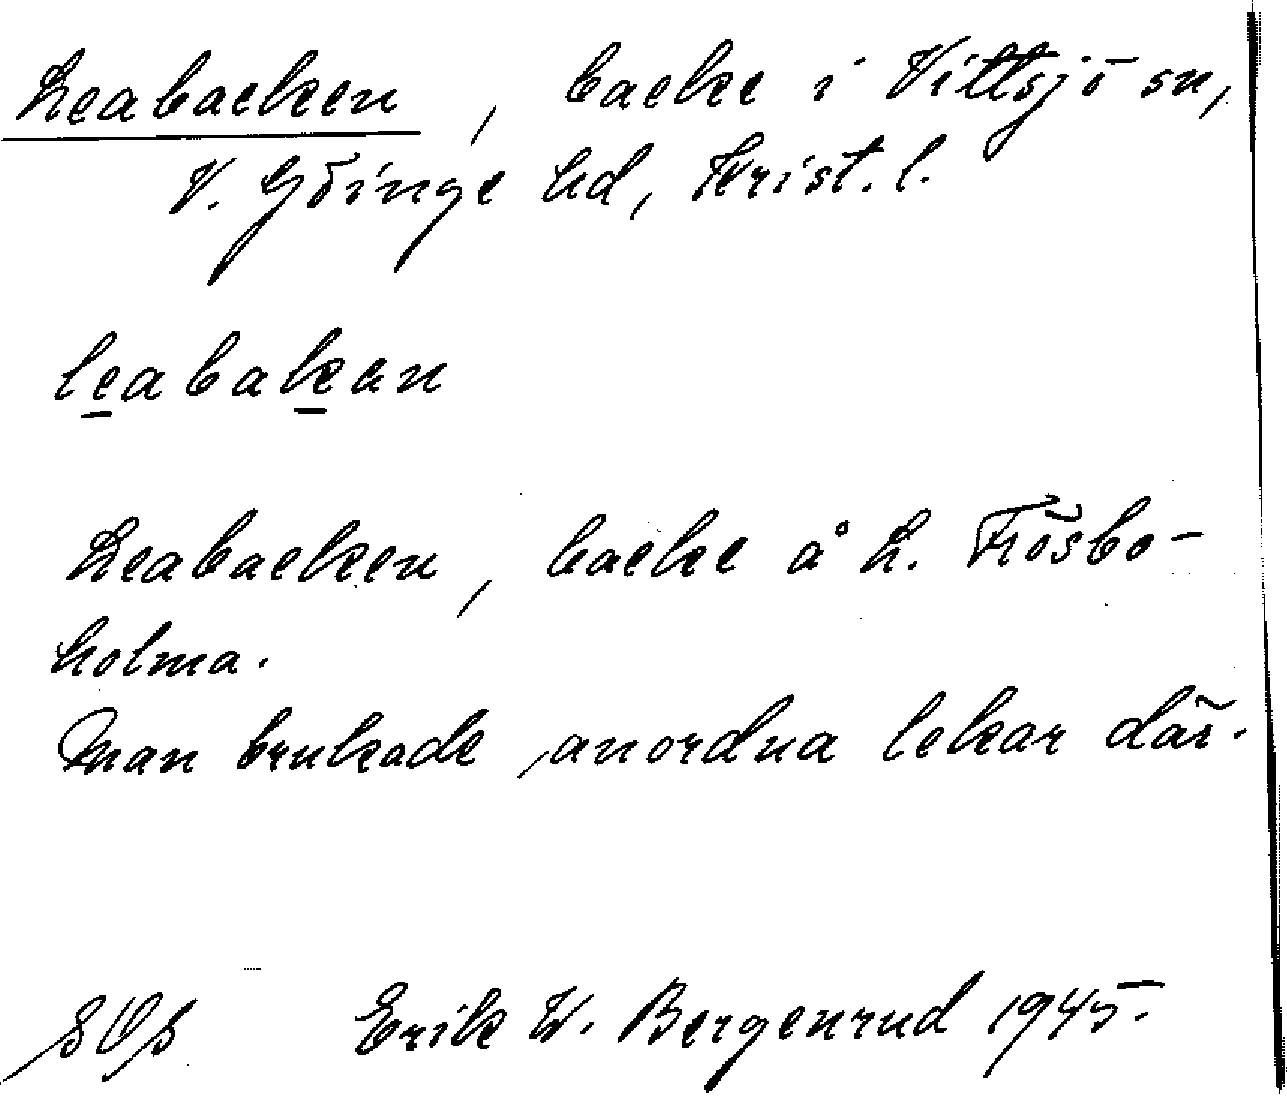 Leabacken, backe i Vittsjö sn,
V. Göinge hd, Krist. l.
leabakan
Leabacken, backe å L. Frösbo-
holma.
Man brukade anordna lekar där.
Erik W. Bergenrud 1945.